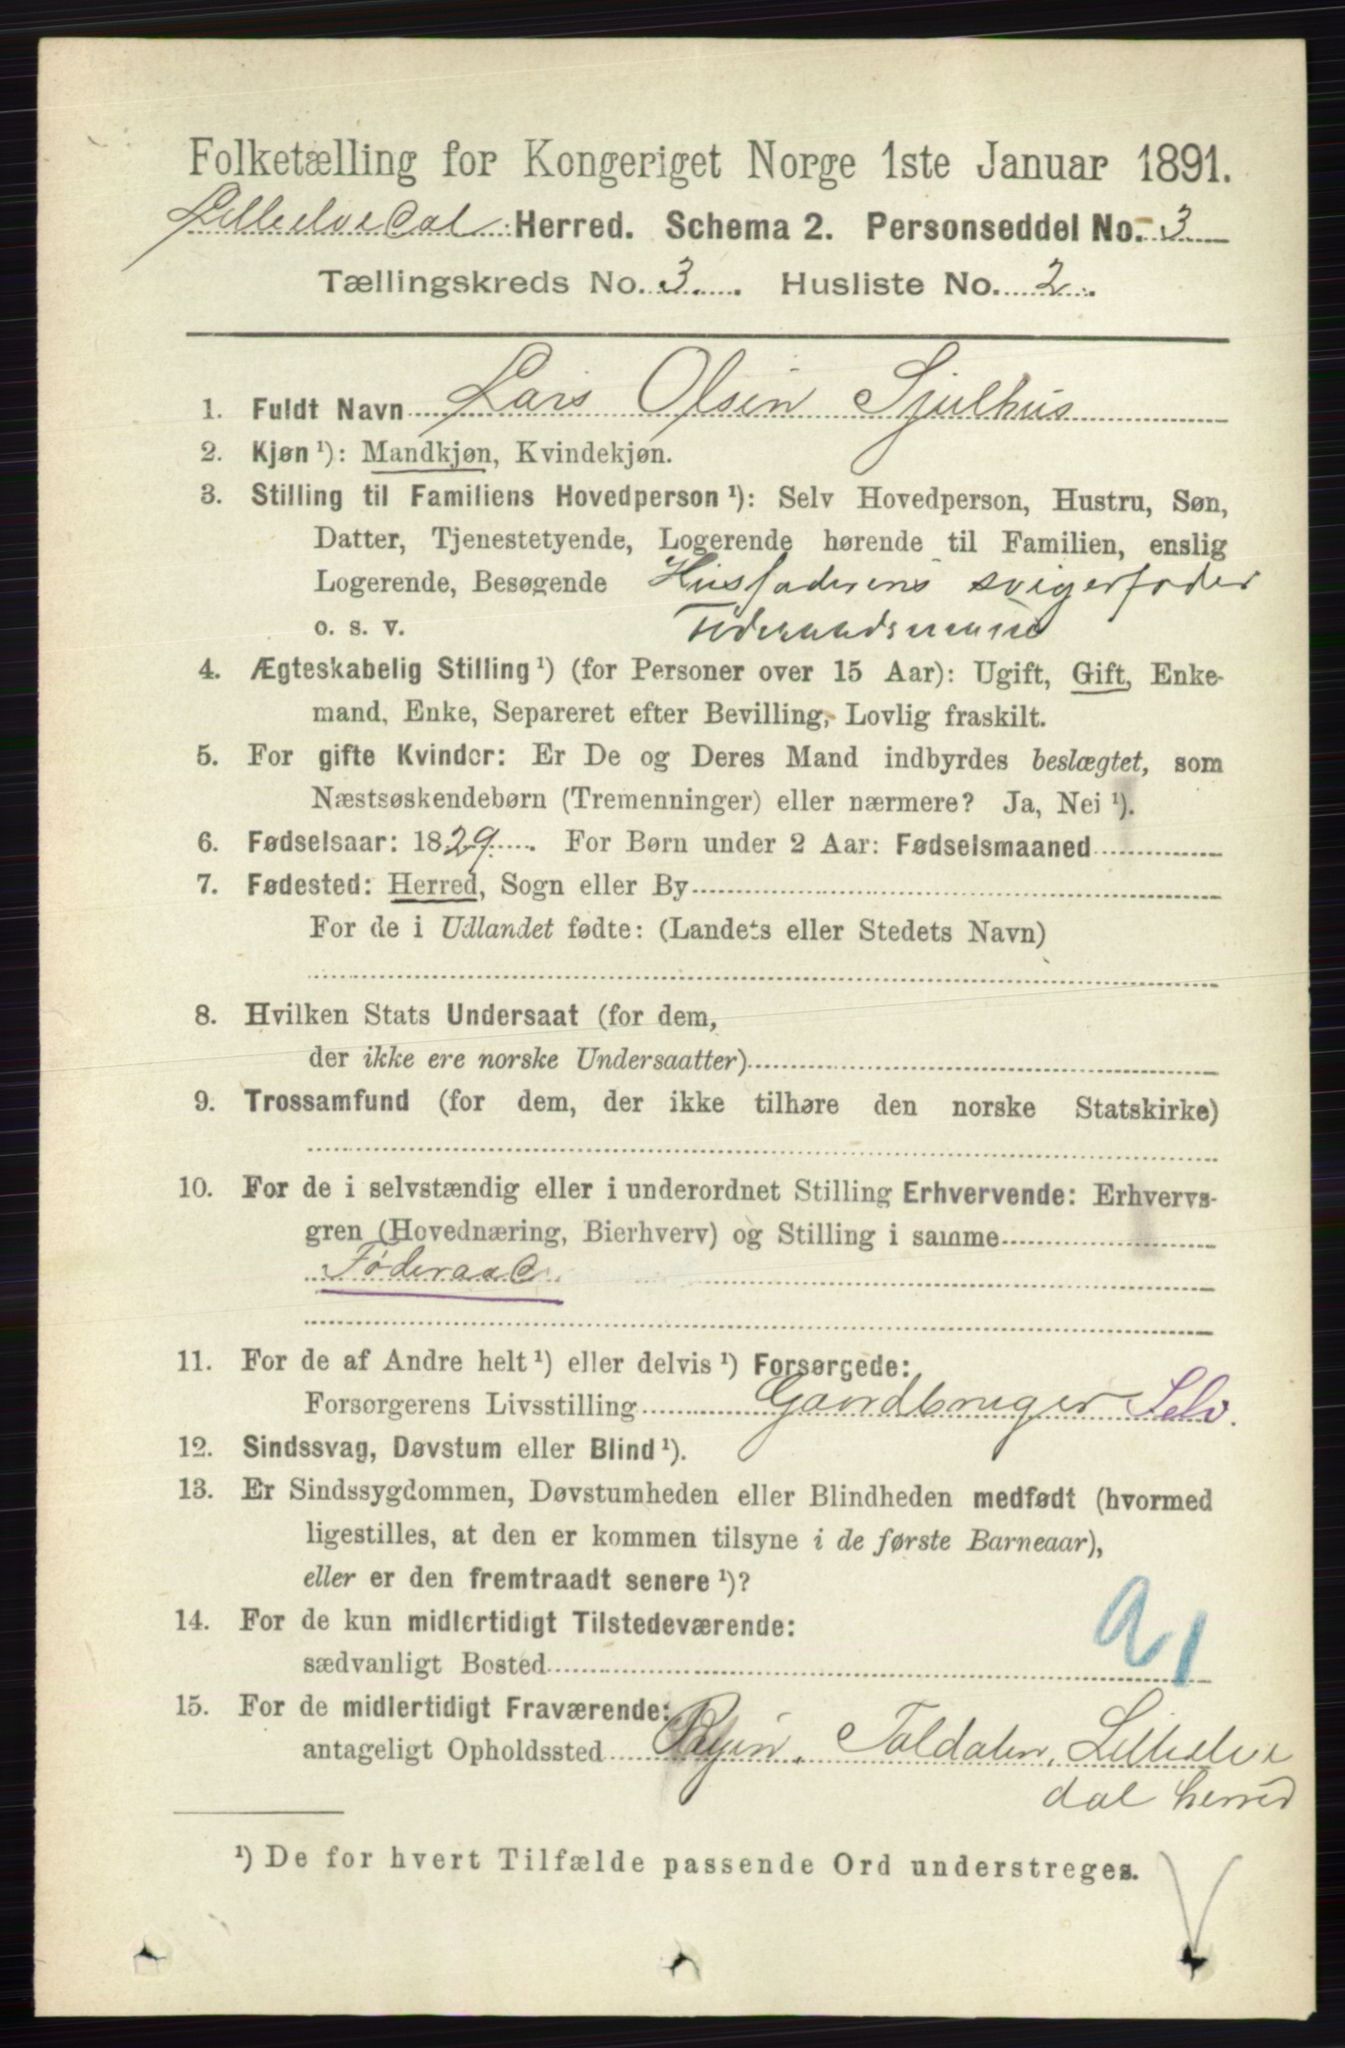 Folketælling for Kongeriget Norge 1ste Januar 1891.
Lilleelvedal Herred. Schema 2. Personseddel No. 3
Tællingskreds No. 3. Husliste No. 2
1. Fuldt Navn Lars Olsen Sjulhus
2. Kjøn ¹): Mandkjøn, Kvindekjøn.
3. Stilling til Familiens Hovedperson ¹): Selv Hovedperson, Hustru, Søn,
Datter, Tjenestetyende, Logerende hørende til Familien, enslig
Logerende, Besøgende Husfaderens svigerfader
o. s. v. Føderaadsmand
4. Ægteskabelig Stilling ¹) (for Personer over 15 Aar): Ugift, Gift, Enke-
mand, Enke, Separeret efter Bevilling, Lovlig fraskilt.
5. For gifte Kvinder: Er De og Deres Mand indbyrdes beslægtet, som
Næstsøskendebørn (Tremenninger) eller nærmere? Ja, Nei ¹).
6. Fødselsaar: 1829. For Børn under 2 Aar: Fødselsmaaned
7. Fødested: Herred, Sogn eller By
For de i Udlandet fødte: (Landets eller Stedets Navn)
8. Hvilken Stats Undersaat (for dem,
der ikke ere norske Undersaatter)
9. Trossamfund (for dem, der ikke tilhøre den norske Statskirke)
10. For de i selvstændig eller i underordnet Stilling Erhvervende: Erhvervs-
gren (Hovednæring, Bierhverv) og Stilling i samme
Føderaad
11. For de af Andre helt ¹) eller delvis ¹) Forsørgede:
Forsørgerens Livsstilling Gaardbruger Selv.
12. Sindssvag, Døvstum eller Blind ¹).
13. Er Sindssygdommen, Døvstumheden eller Blindheden medfødt (hvormed
ligestilles, at den er kommen tilsyne i de første Barneaar),
eller er den fremtraadt senere ¹)?
14. For de kun midlertidigt Tilstedeværende:
sædvanligt Bosted
15. For de midlertidigt Fraværende:
antageligt Opholdssted Foldalen, Lilleelve
dal herred
¹) De for hvert Tilfælde passende Ord understreges.